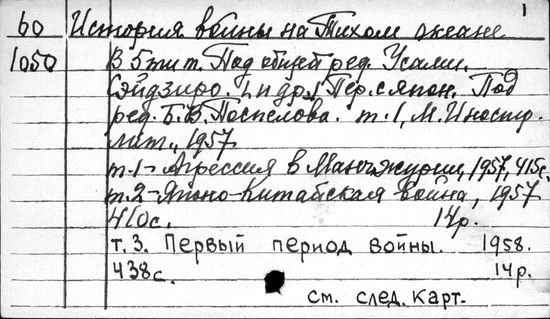 1
60 История войны на Тихом океане
1050 В 5ти т. Под общей ред. Усами
Сэйдзиро. [и др.] Пер. с япон. Под
ред. Б. В. Поспелова. т. 1, М. Иностр.
лит., 1957
т. 1- Агрессия в Манчжурии, 1957, 415с.
т. 2- Японо-Китайская война, 1957
410с. 14р.
т. 3. Первый период войны. 1958.
438с. 14р.
см. след. карт.